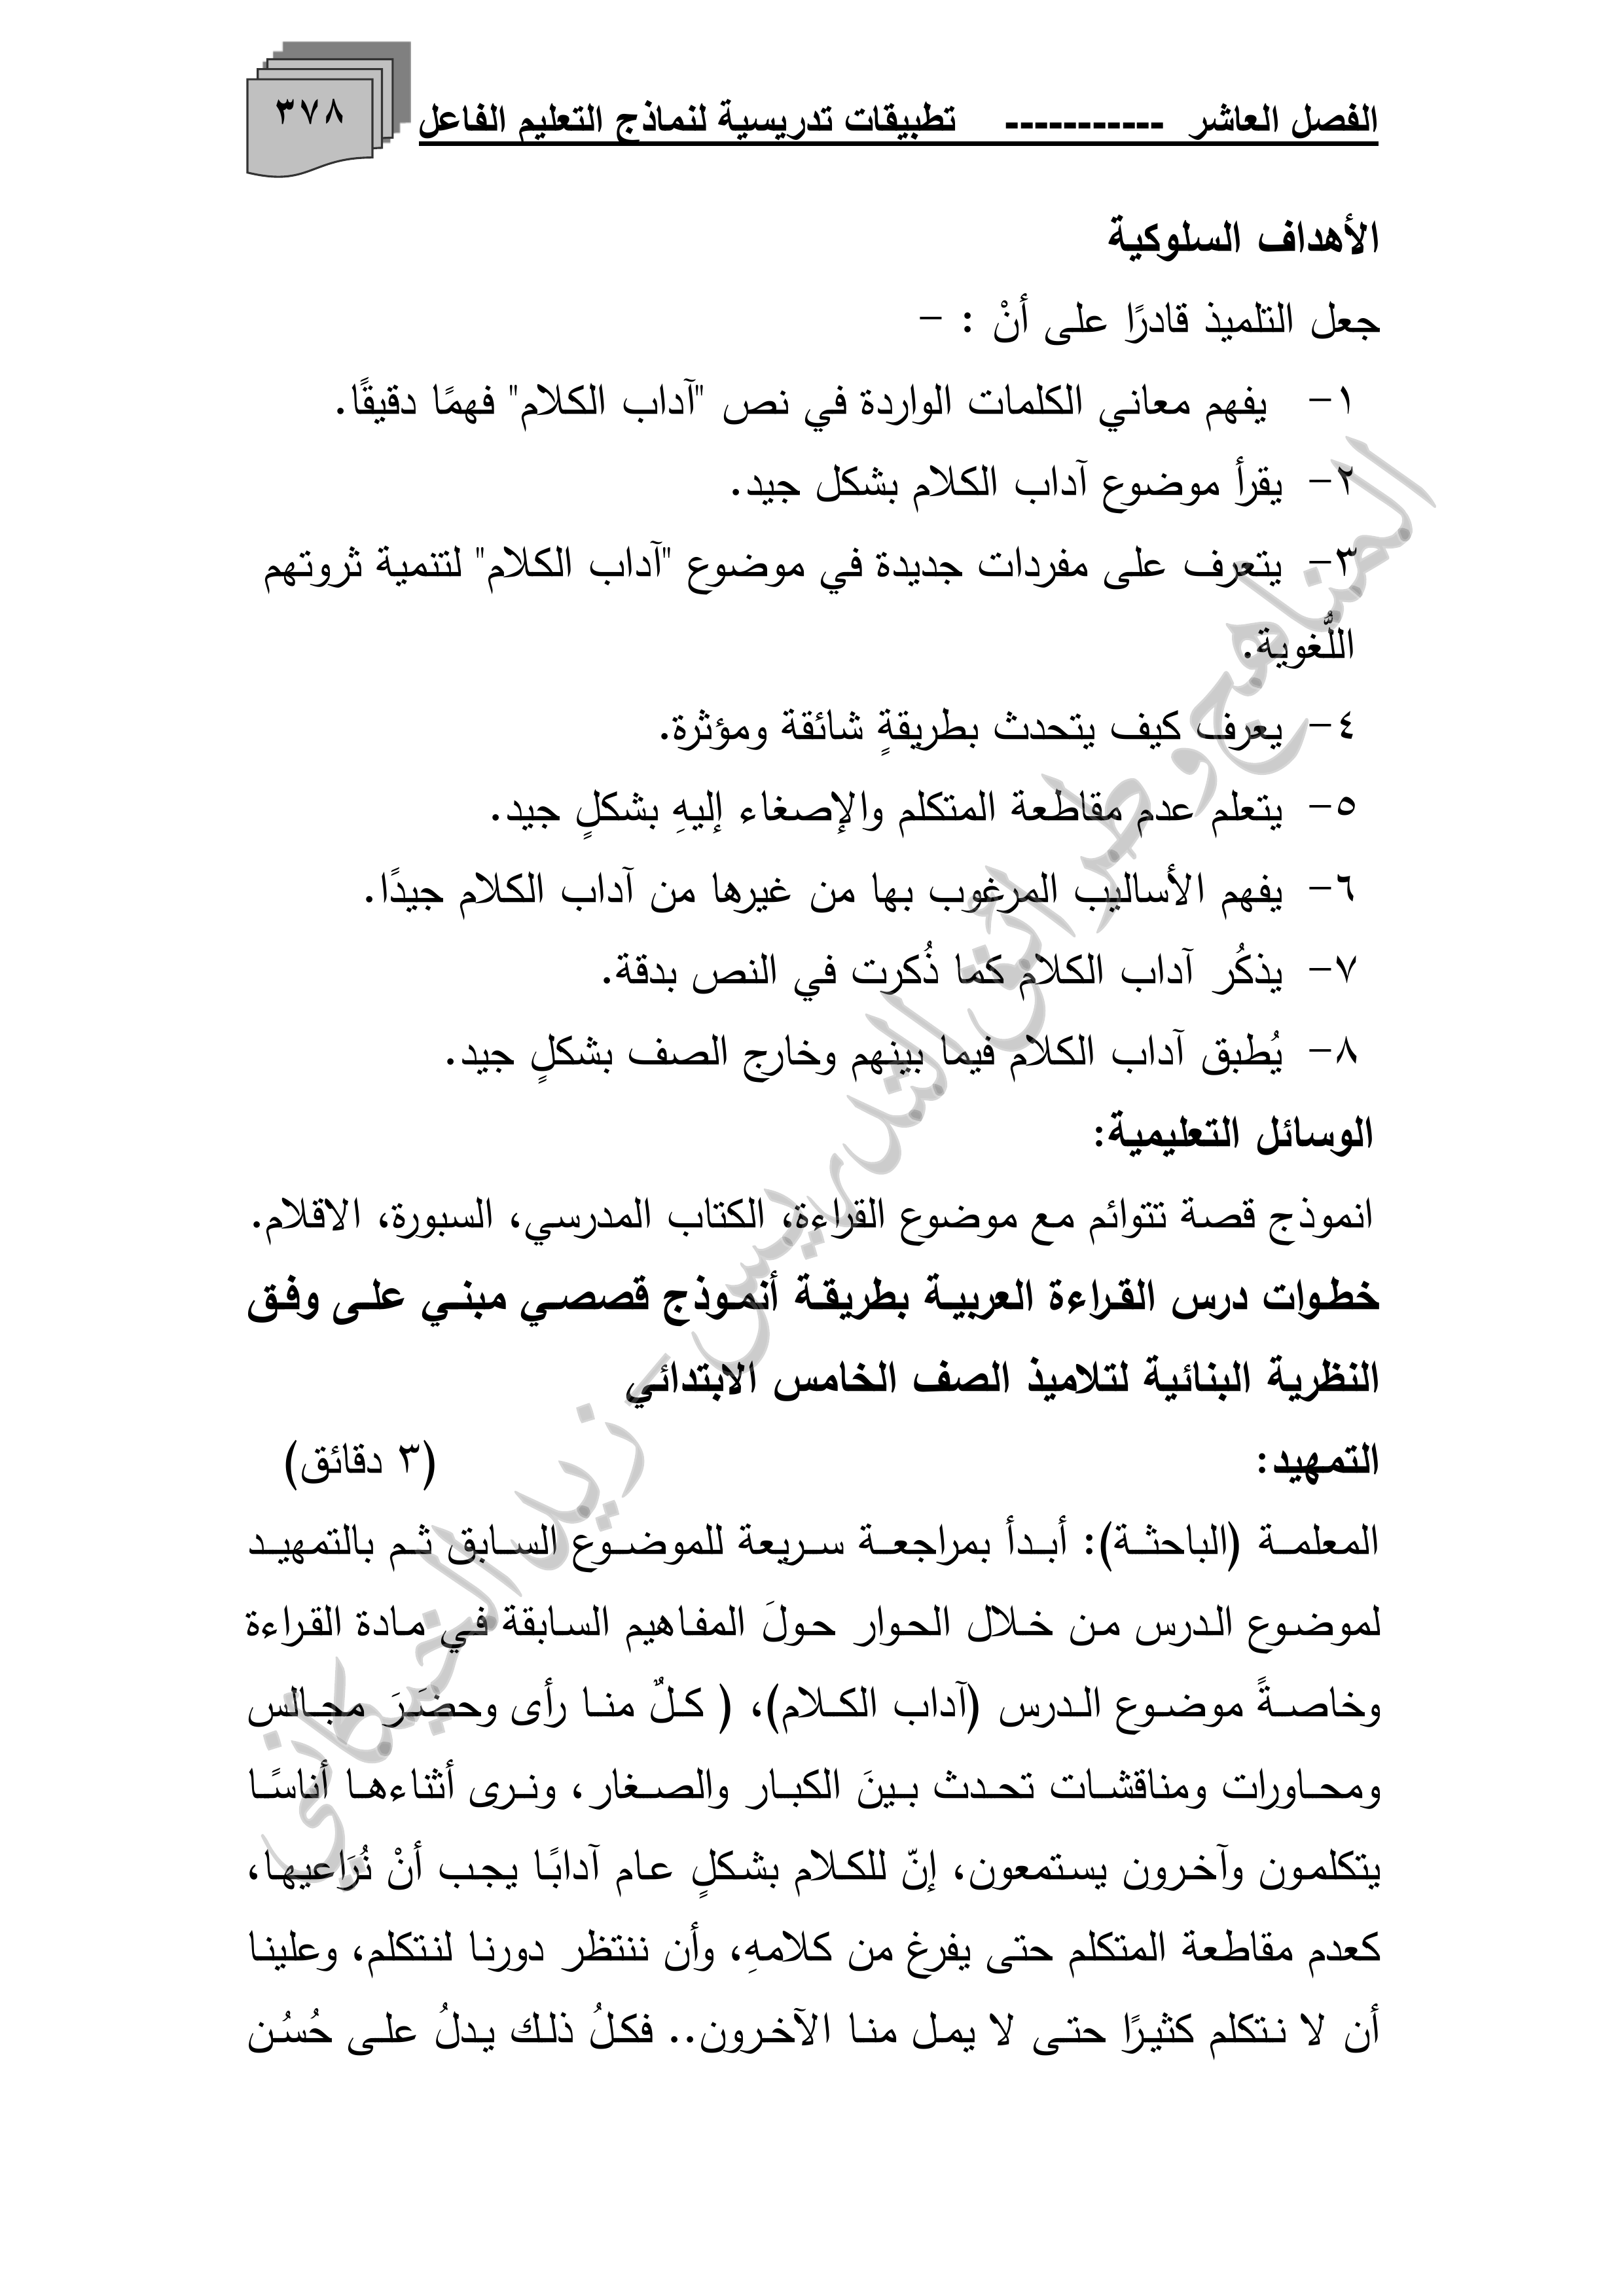 الفصل العاشر ----------- تطبيقات تدريسية لنماذج التعليم الفاعل
٣٧٨
الأهداف السلوكية
جعل التلميذ قادرًا على أنْ : -
١- يفهم معاني الكلمات الواردة في نص "آداب الكلام" فهمًا دقيقًا.
٢- يقرأ موضوع آداب الكلام بشكل جيد.
٣- يتعرف على مفردات جديدة في موضوع "آداب الكلام" لتنمية ثروتهم
اللُّغوية.
٤- يعرف كيف يتحدث بطريقةٍ شائقة ومؤثرة.
٥- يتعلم عدم مقاطعة المتكلم والإصغاء إليهِ بشكلٍ جيد.
٦- يفهم الأساليب المرغوب بها من غيرها من آداب الكلام جيدًا.
٧- يذكُر آداب الكلام كما ذُكرت في النص بدقة.
٨- يُطبق آداب الكلام فيما بينهم وخارج الصف بشكلٍ جيد.
الوسائل التعليمية:
انموذج قصة تتوائم مع موضوع القراءة، الكتاب المدرسي، السبورة، الاقلام.
خطوات درس القراءة العربية بطريقة أنموذج قصصي مبني على وفق
النظرية البنائية لتلاميذ الصف الخامس الابتدائي
التمهيد: (٣ دقائق)
المعلمة (الباحثة): أبدأ بمراجعة سريعة للموضوع السابق ثم بالتمهيد
لموضوع الدرس من خلال الحوار حولَ المفاهيم السابقة في مادة القراءة
وخاصةً موضوع الدرس (آداب الكلام)، ( كلٌ منا رأى وحضَرَ مجالس
ومحاورات ومناقشات تحدث بينَ الكبار والصغار، ونرى أثناءها أناسًا
يتكلمون وآخرون يستمعون، إنّ للكلام بشكلٍ عام آدابًا يجب أنْ نُرَاعيها،
كعدم مقاطعة المتكلم حتى يفرغ من كلامهِ، وأن ننتظر دورنا لنتكلم، وعلينا
أن لا نتكلم كثيرًا حتى لا يمل منا الآخرون.. فكلُ ذلك يدلُ على حُسُن
المناهج وطرائق التدريس - زيد الخيكاني